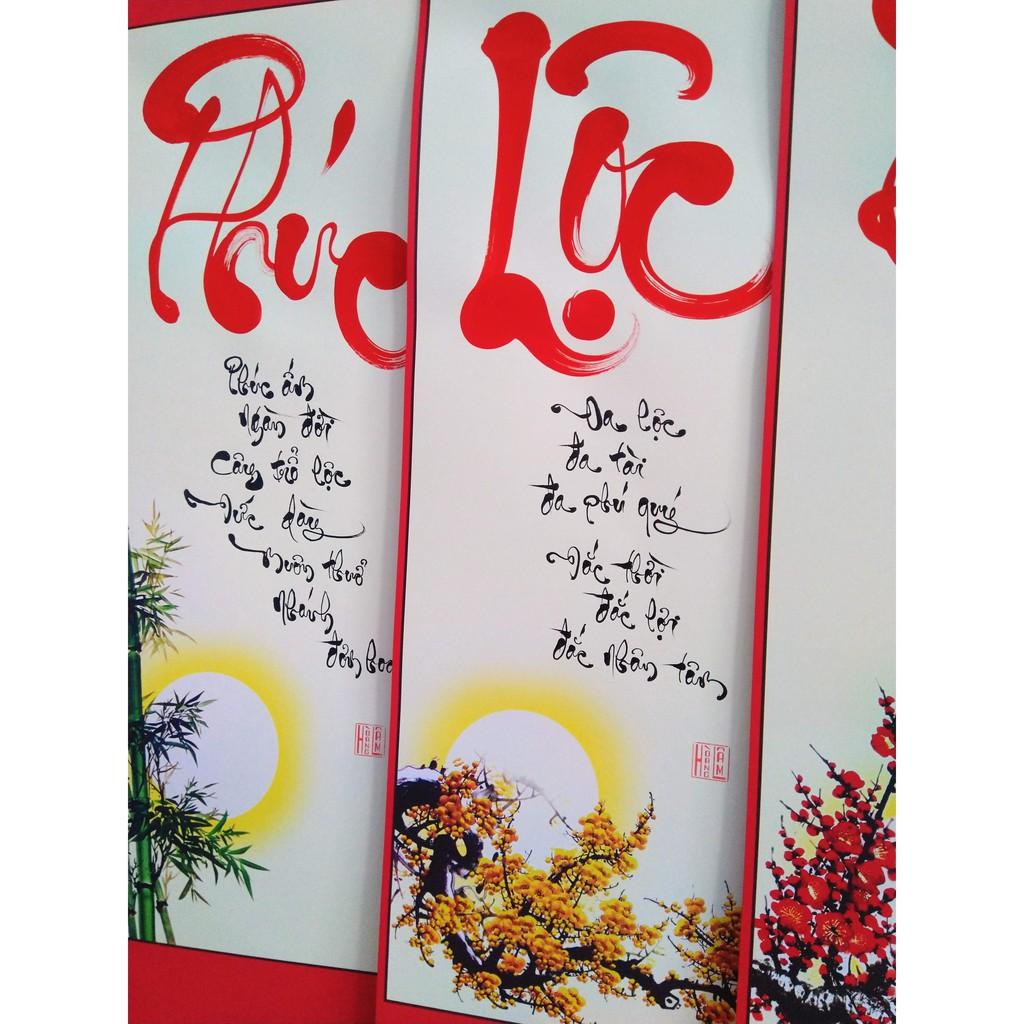 Phúc
Phúc ấm
ngàn đời
Cây trổ lộc
Đức dày
muôn thuở
Nhánh
đơm hoa
HOÀNG LAM
Lộc
Đa lộc
đa tài
đa phú quý
Đắc thời
đắc lợi
đắc nhân tâm
HOÀNG LAM